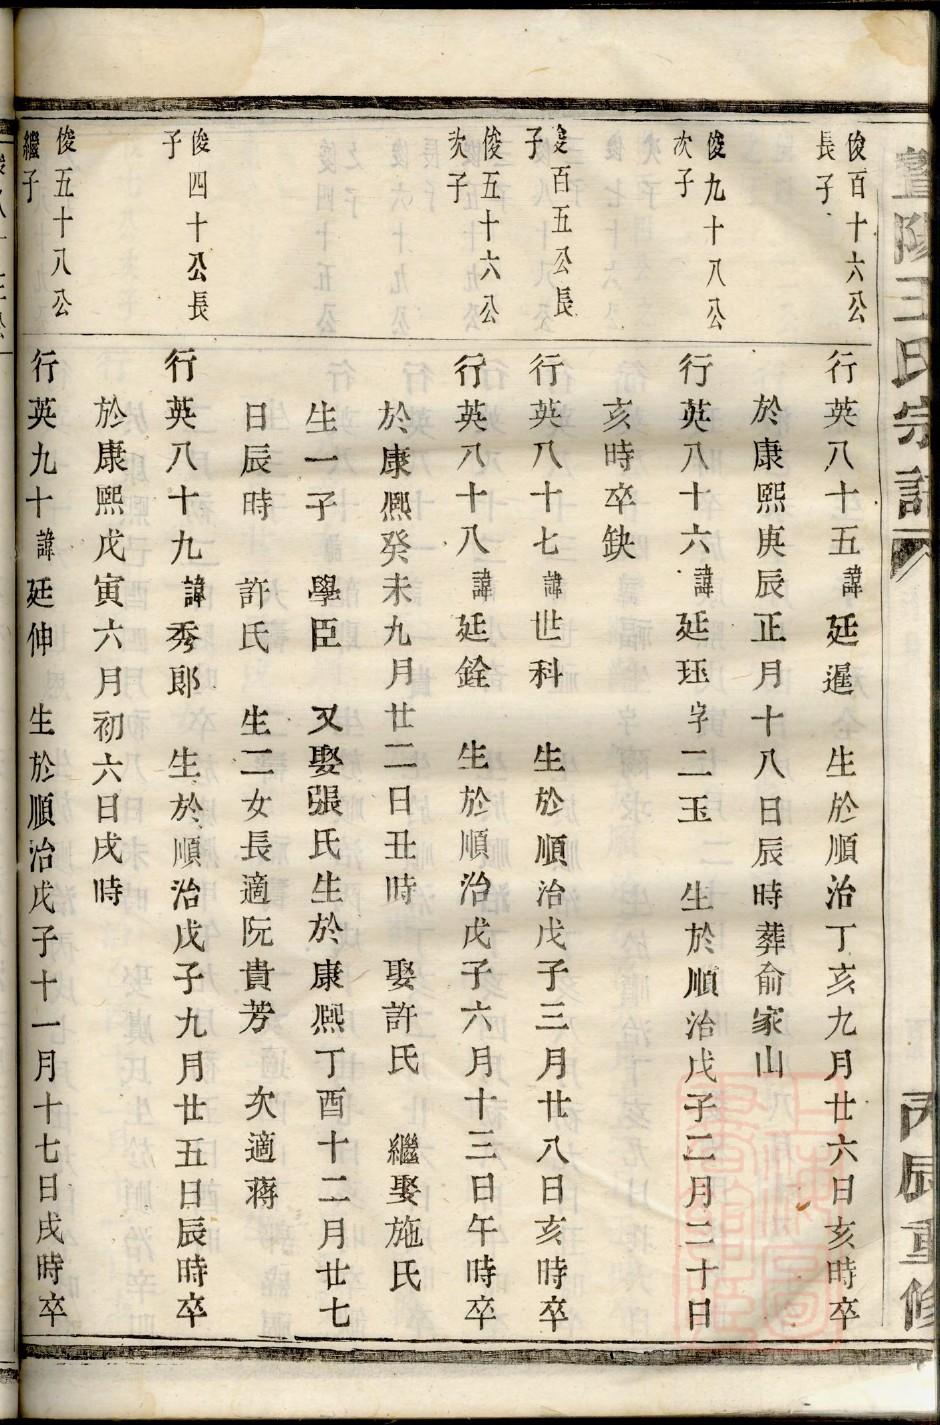 暨陽王氏宗譜
丙辰重修
俊百十六公
長子
行英八十五諱廷暹 生於順治丁亥九月廿六日亥時卒
於康熙庚辰正月十八日辰時葬俞家山
俊九十八公
次子
行英八十六諱廷珏字二玉 生於順治戊子二月二十日
亥時卒缺
俊百五公長
子
行英八十七諱世科 生於順治戊子三月廿八日亥時卒
俊五十六公
次子
行英八十八諱廷銓 生於順治戊子六月十三日午時卒
於康熙癸未九月廿二日丑時 娶許氏 繼娶施氏
生一子 學臣 又娶張氏生於康熙丁酉十二月廿七
日辰時 許氏 生二女長適阮貴芳 次適蔣
俊四十公長
子
行英八十九諱秀郎 生於順治戊子九月廿五日辰時卒
於康熙戊寅六月初六日戌時
俊五十八公
繼子
行英九十諱廷伸 生於順治戊子十一月十七日戌時卒